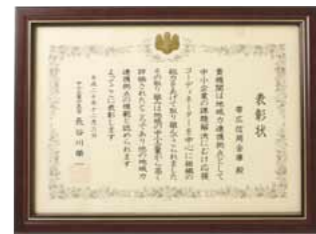 表彰状
帯広信用金庫 殿
貴機関は地域力連携拠点として
中小企業の課題解決にむけ応援
コーディネーターを中心に組織の
総力をあげて取り組んでこられました
その取り組みは地域の中小企業から高く
評価されたところであり他の地域力
連携拠点の模範と認められます
よってここに表彰します
平成二十年十二月三日
中小企業庁長官 長谷川榮一